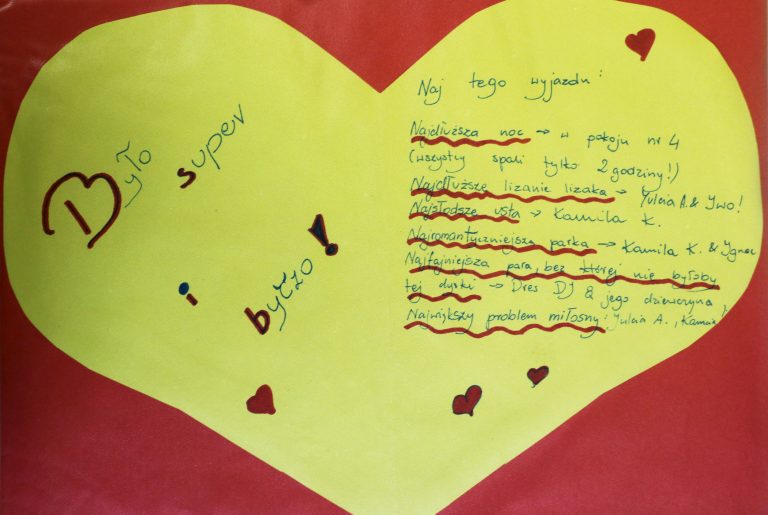 Było super
i byczo!
Naj tego wyjazdu:
Najdłuższa noc → w pokoju nr 4
(wszyscy spali tylko 2 godziny!)
Najdłuższe lizanie lizaka → Julcia A. & Iwo!
Najsłodsze usta → Kamila K.
Najromantyczniejsza parka → Kamila K. & Ignac
Najfajniejsza para, bez której nie byłoby
tej dyski → Dres DJ & jego dziewczyna
Największy problem miłosny: Julcia A., Kamila